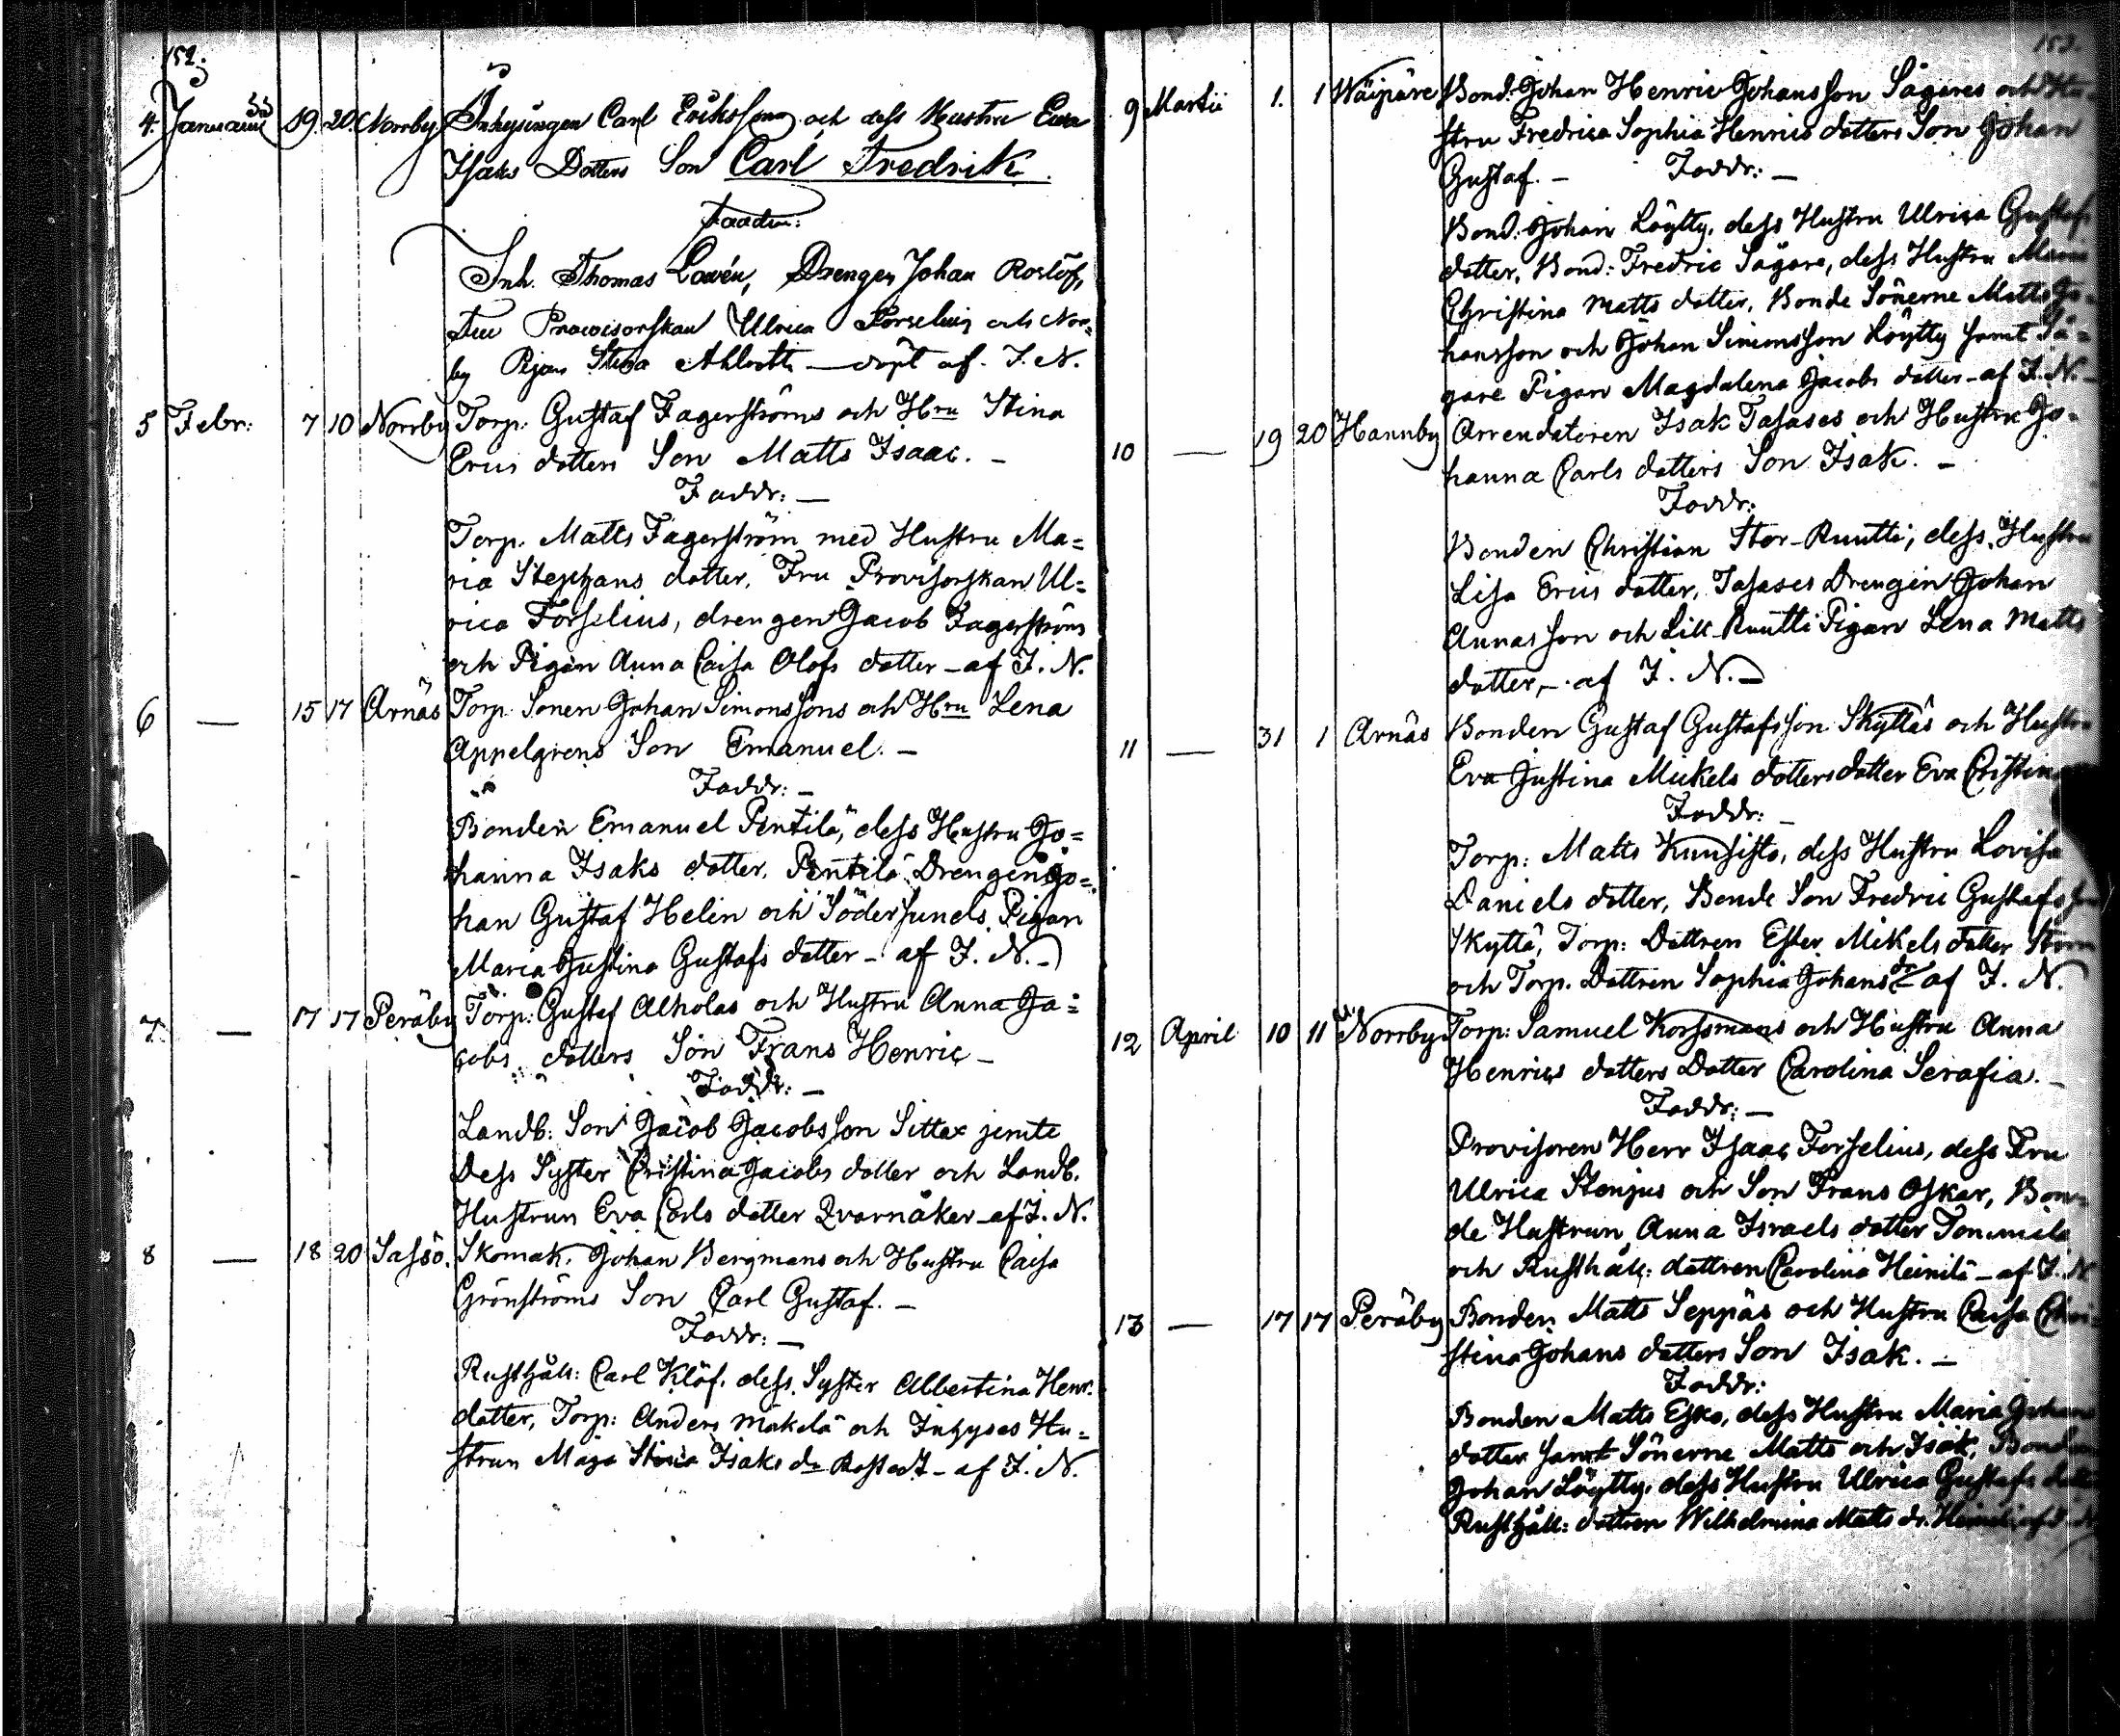 152.
4. Januarii 19. 20. Norrby Inhysingen Carl Erikssons och dess Hustru Eva
Isaks Dotters Son Carl Fredrik.
Faddr:
Inh. Thomas Lovén, Drengen Johan Roslöf,
Fru Provisorskan Ulrica Forselius och Nor=
by Pigan Stina Ahl — döpt af J. N.
5 Febr: 7 10 Norrby Torp. Gustaf Fagerströms och Hru Stina
Erics dotters Son Matts Isaac. —
Faddr: —
Torp. Matts Fagerström med Hustru Ma=
ria Stephans dotter, Fru Provisorskan Ul=
rica Forselius, drengen Jacob Fagerström
och Pigan Anna Caisa Olofs dotter – af J. N.
6 — 15 17 Arnäs Torp. Sonen Johan Simonssons och Hru Lena
Appelgrens Son Emanuel. —
Faddr: —
Bonden Emanuel Pentilä, dess Hustru Jo=
hanna Isaks dotter, Pentilä Drengen Jo=
han Gustaf Helin och Södersunds Pigan
Maria Justina Gustafs dotter – af J. N. –
7. — 17 17 Peräby Torp: Gustaf Alholas och Hustru Anna Ja=
cobs dotters Son Frans Henric —
Faddr: —
Landb: Son Jacob Jacobsson Sitter jemte
Dess Syster Christina Jacobs dotter och Landb.
Hustrun Eva Carls dotter Qvarnåker – af J. N.
8 — 18 20 Sassö. Skomak. Johan Bergmans och Hustru Caisa
Grönströms Son Carl Gustaf. —
Faddr: —
Rusthåll: Carl Klöf. dess Syster Albertina Henr.
dotter, Torp: Anders Mäkelä och Inhyses Hu=
strun Maja Stina Isaks dr – af J. N.
153.
9 Martii 1. 1 Wäipäre Bond: Johan Henric Johansson Sägares och Hu=
stru Fredrica Sophia Henrics dotters Son Johan
Gustaf. — Faddr: —
Bond: Johan Löytty, dess Hustru Ulrica Gustafs
dotter, Bond: Fredric Sägare, dess Hustru Maria
Christina Matts dotter, Bonde Sönerne Matts Jo=
hansson och Johan Simonsson Löytty samt Sä=
gare Pigan Magdalena Jacobs dotter – af J. N. –
10 — 19 20 Hannby Arrendatoren Isak Tasases och Hustru Jo=
hanna Carls dotters Son Isak. —
Faddr:
Bonden Christian Stor-Ruutti, dess Hustru
Lisa Erics dotter, Tasases Drengen Johan
Annasson och Lill-Ruutti Pigan Lena Matts
dotter, – af J. N. –
11 — 31 1 Arnäs Bonden Gustaf Gustafsson Skyttäs och Hustru
Eva Justina Mickels dotters dotter Eva Cristina
Faddr: —
Torp: Matts Kuusisto, dess Hustru Lovisa
Daniels dotter, Bonde Son Fredric Gustafsson
Skyttä, Torp: Dottren Ester Mikels dotter Storm
och Torp. Dottren Sophia Johans dr af J. N.
12 April 10 11 Norrby Torp: Samuel Korssmans och Hustru Anna
Henrics dotters Dotter Carolina Serafia. —
Faddr: —
Provisoren Herr Isaac Forselius, dess Fru
Ulrica Stenjus och Son Frans Oskar, Bon=
de Hustrun Anna Israels dotter Tommila
och Rusthåll: dottren Carolina Heinilä – af J. N
13 — 17 17 Peräby Bonden Matts Seppäs och Hustru Caisa Chri=
stina Johans dotters Son Isak. —
Faddr:
Bonden Matts Esko, dess Hustru Maria Johans
dotter samt Sönerne Matts och Isak, Bonden
Johan Löytty, dess Hustru Ulrica Gustafs dotter
Rusthåll: dottren Wilhelmina Matts dr. af J. N